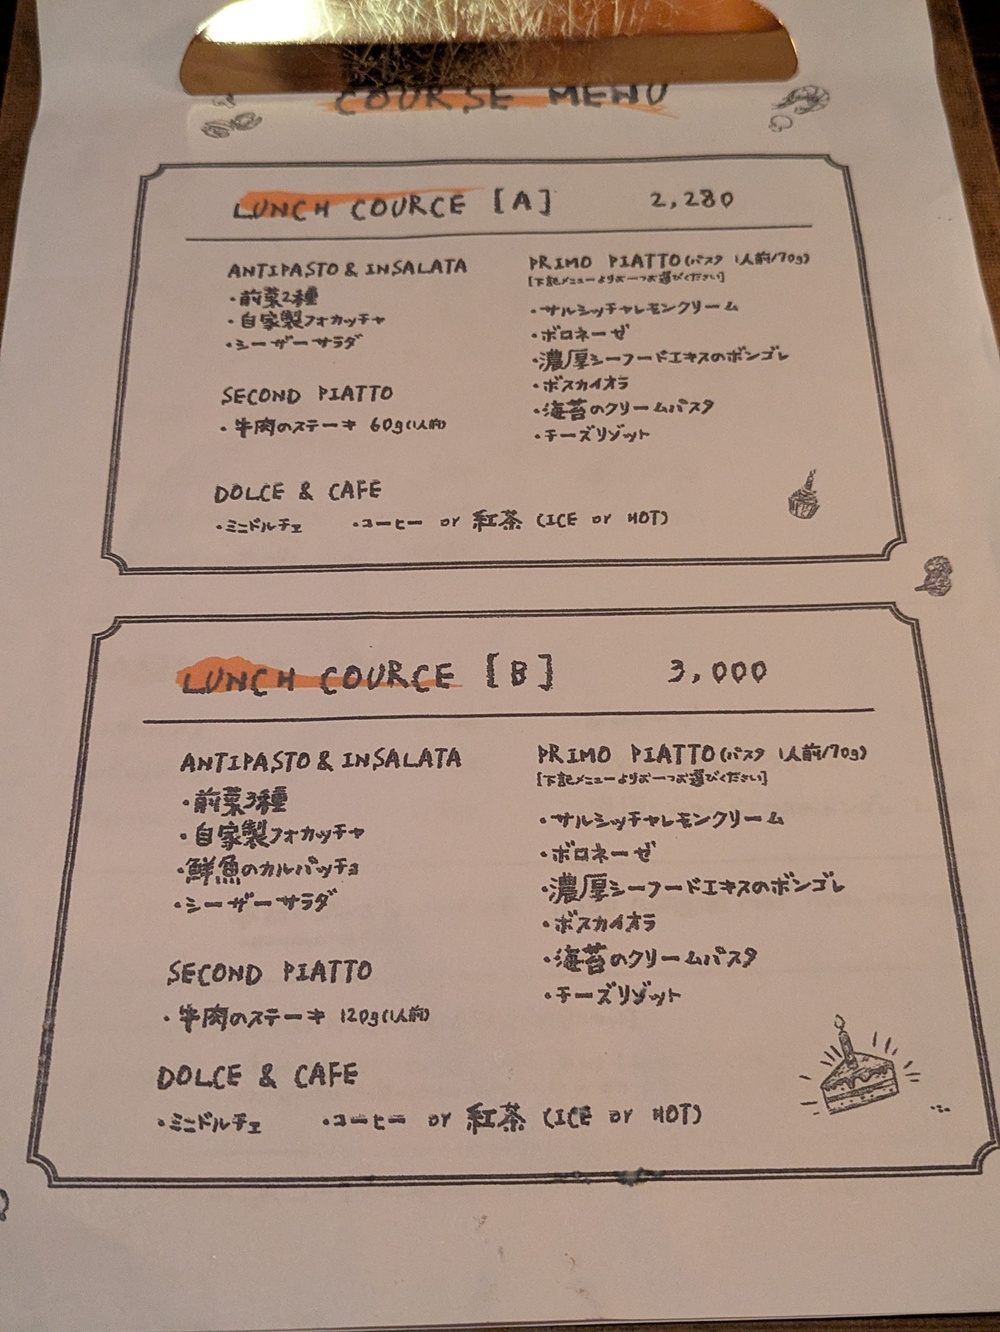 COURSE MENU
LUNCH COURCE [A] 2,280
ANTIPASTO & INSALATA
・前菜2種
・自家製フォカッチャ
・シーザーサラダ
SECOND PIATTO
・牛肉のステーキ 60g(1人前)
PRIMO PIATTO(パスタ 1人前/70g)
[下記メニューよりお一つお選びください]
・サルシッチャレモンクリーム
・ボロネーゼ
・濃厚シーフードエキスのボンゴレ
・ボスカイオラ
・海苔のクリームパスタ
・チーズリゾット
DOLCE & CAFE
・ミニドルチェ ・コーヒー or 紅茶 (ICE or HOT)
LUNCH COURCE [B] 3,000
ANTIPASTO & INSALATA
・前菜3種
・自家製フォカッチャ
・鮮魚のカルパッチョ
・シーザーサラダ
SECOND PIATTO
・牛肉のステーキ 120g(1人前)
PRIMO PIATTO(パスタ 1人前/70g)
[下記メニューよりお一つお選びください]
・サルシッチャレモンクリーム
・ボロネーゼ
・濃厚シーフードエキスのボンゴレ
・ボスカイオラ
・海苔のクリームパスタ
・チーズリゾット
DOLCE & CAFE
・ミニドルチェ ・コーヒー or 紅茶 (ICE or HOT)